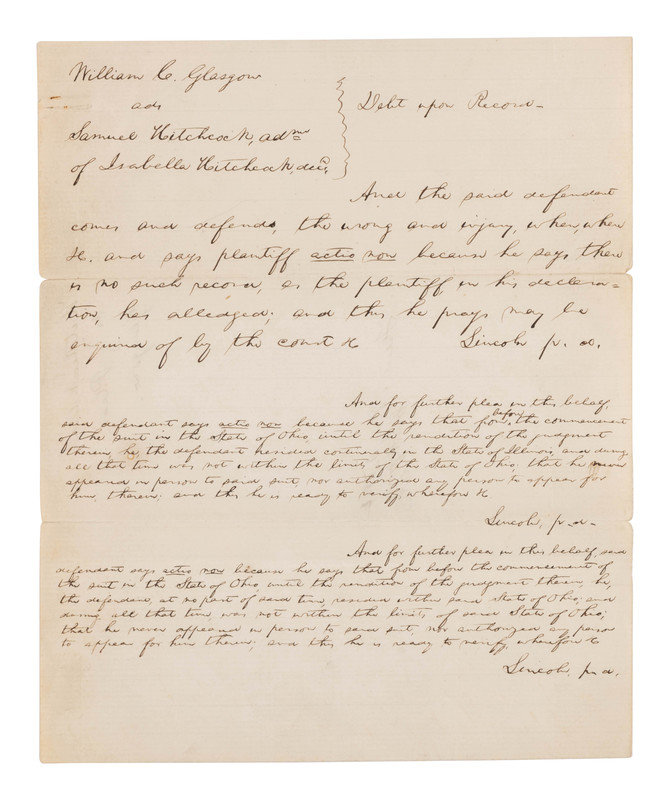 William C. Glasgow
ads
Samuel Hitchcock, admr
of Isabella Hitchcock, decd.
Debt upon Record—
And the said defendant
comes and defends, the wrong and injury, when, where
&c. and says plaintiff actio non because he says there
is no such record, as the plaintiff in his declara=
tion, has alledged; and this he prays may be
enquired of by the court &c
Lincoln p. d.
And for further plea in this behalf,
said defendant says actio non because he says that from before the commencement
of the suit in the State of Ohio, until the rendition of the judgment
therein, he, the defendant resided continually in the State of Illinois, and during
all that time was not within the limits of the State of Ohio; that he never
appeared in person to said suit, nor authorized any person to appear for
him therein; and this he is ready to verify, wherefore &c.
Lincoln, p. d.
And for further plea in this behalf, said
defendant says actio non because he says that from before the commencement of
the suit in the State of Ohio until the rendition of the judgment therein, he,
the defendant, at no part of said time resided within said State of Ohio; and
during all that time, was not within the limits of said State of Ohio;
that he never appeared in person to said suit, nor authorized any person
to appear for him therein; and this he is ready to verify, wherefore &c
Lincoln, p. d.